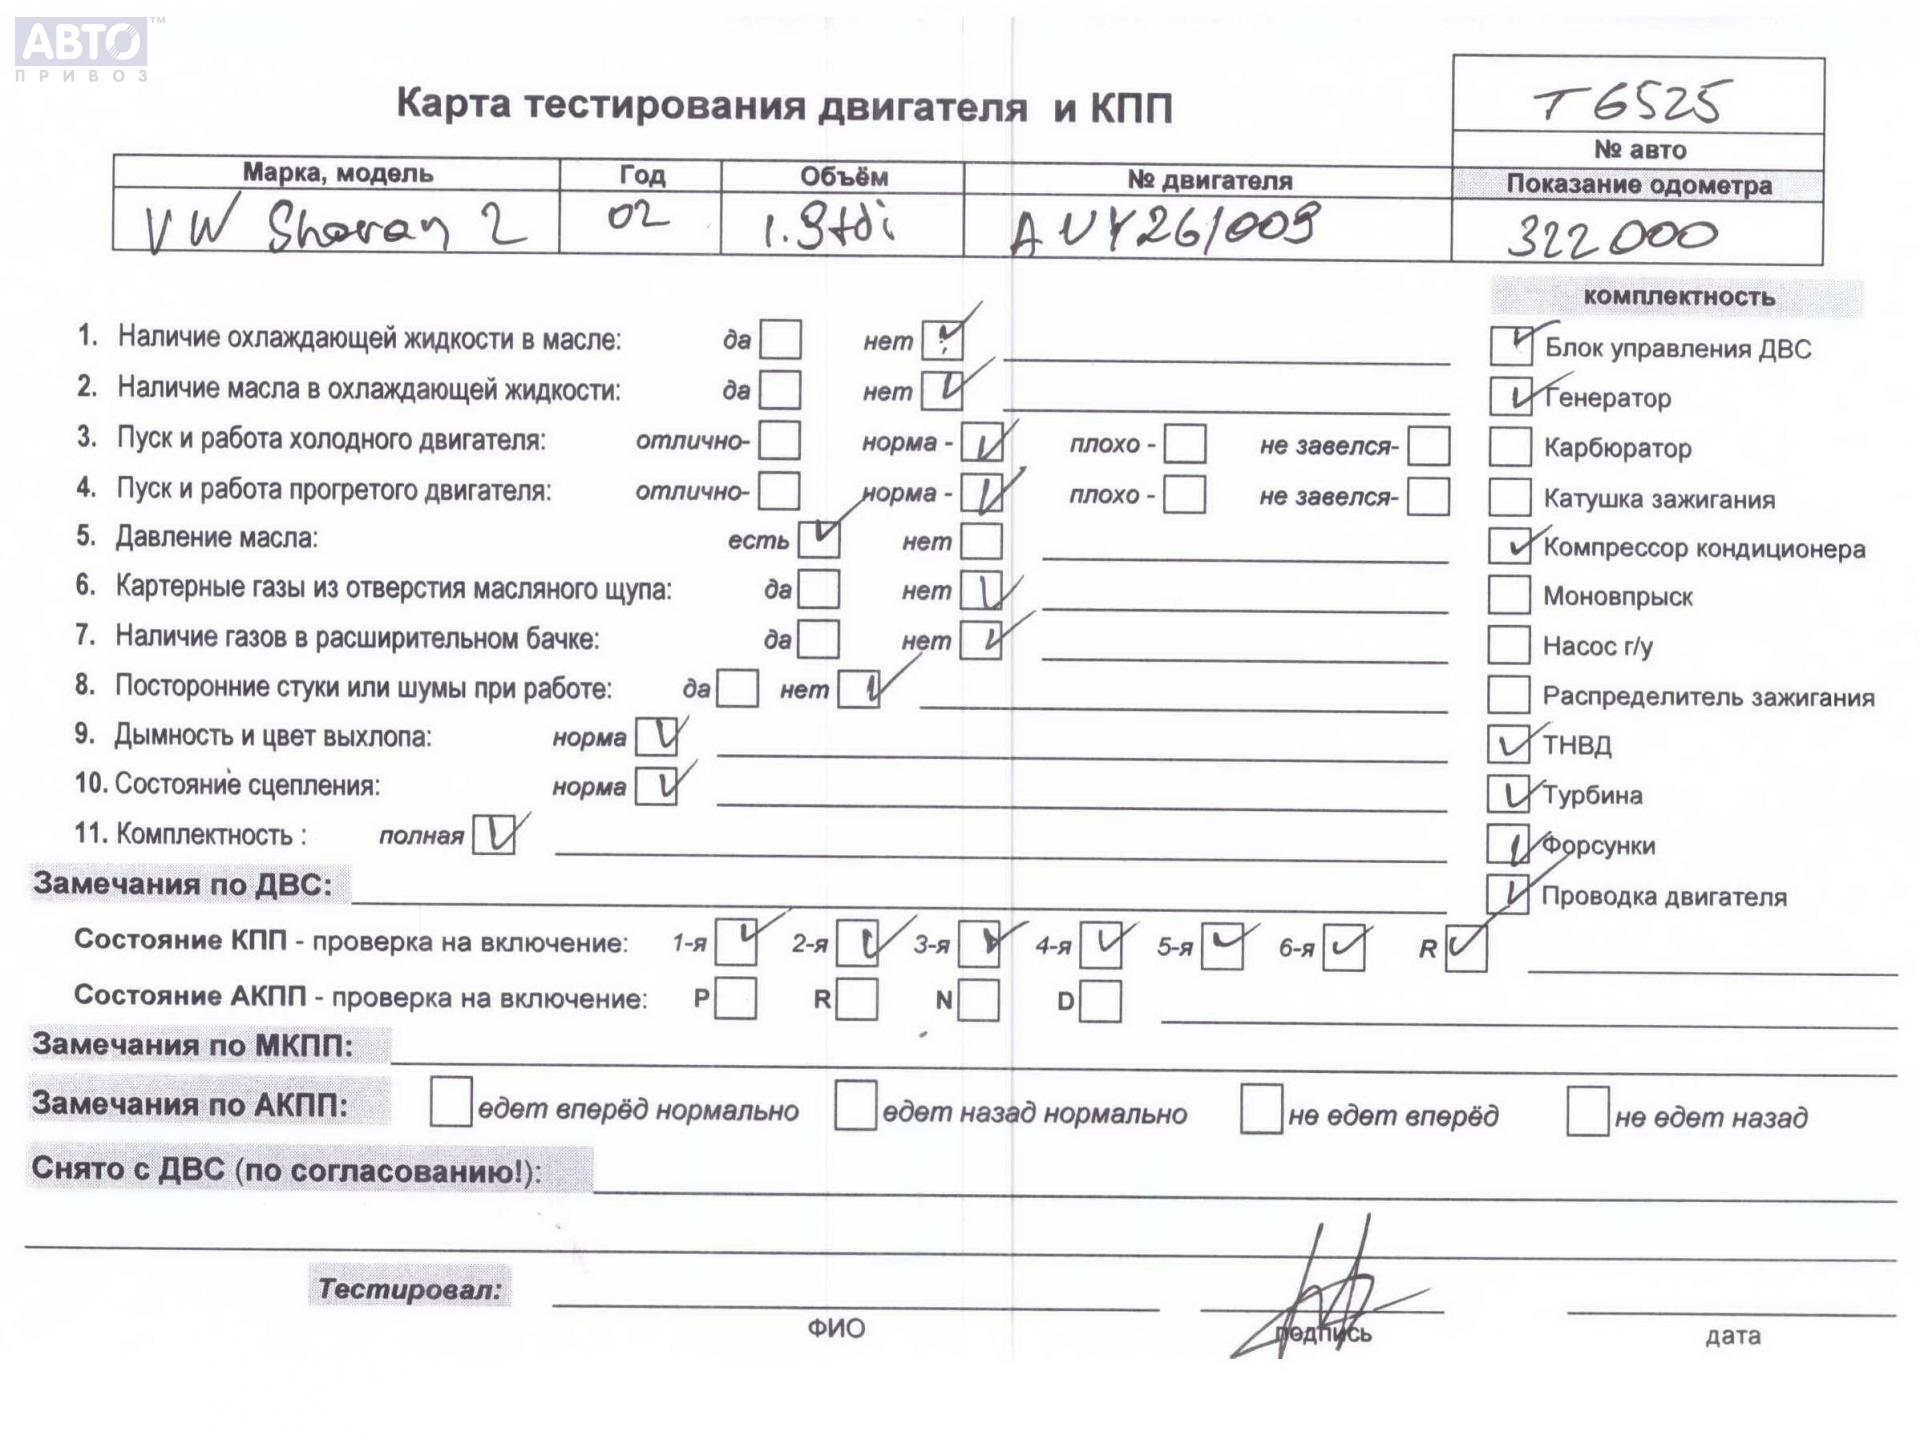 АВТО™
ПРИВОЗ
Карта тестирования двигателя и КПП
T6525
№ авто
Марка, модель Год Объём № двигателя Показание одометра
VW Sharan 2 02 1.9tdi AUY261009 322000
комплектность
1. Наличие охлаждающей жидкости в масле: да нет Блок управления ДВС
2. Наличие масла в охлаждающей жидкости: да нет Генератор
3. Пуск и работа холодного двигателя: отлично- норма - плохо - не завелся- Карбюратор
4. Пуск и работа прогретого двигателя: отлично- норма - плохо - не завелся- Катушка зажигания
5. Давление масла: есть нет Компрессор кондиционера
6. Картерные газы из отверстия масляного щупа: да нет Моновпрыск
7. Наличие газов в расширительном бачке: да нет Насос г/у
8. Посторонние стуки или шумы при работе: да нет Распределитель зажигания
9. Дымность и цвет выхлопа: норма ТНВД
10. Состояние сцепления: норма Турбина
11. Комплектность : полная Форсунки
Замечания по ДВС: Проводка двигателя
Состояние КПП - проверка на включение: 1-я 2-я 3-я 4-я 5-я 6-я R
Состояние АКПП - проверка на включение: P R N D
Замечания по МКПП:
Замечания по АКПП: едет вперёд нормально едет назад нормально не едет вперёд не едет назад
Снято с ДВС (по согласованию!):
Тестировал:
ФИО подпись дата